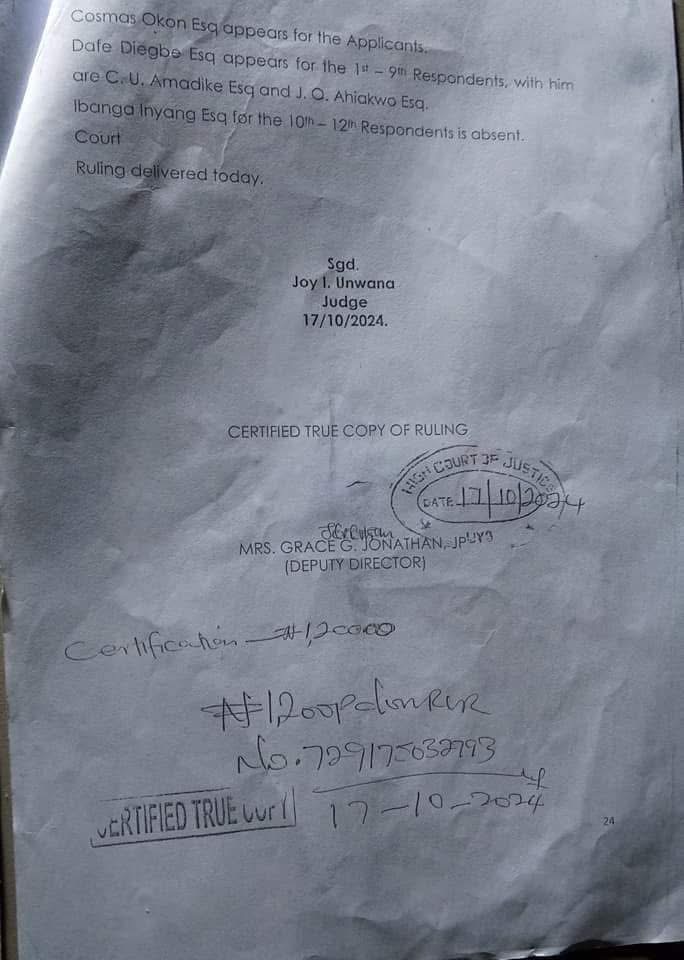 Cosmas Okon Esq appears for the Applicants.
Dafe Diegbe Esq appears for the 1st – 9th Respondents, with him
are C. U. Amadike Esq and J. O. Ahiakwo Esq.
Ibanga Inyang Esq for the 10th – 12th Respondents is absent.
Court
Ruling delivered today.
Sgd.
Joy I. Unwana
Judge
17/10/2024.
CERTIFIED TRUE COPY OF RULING
HIGH COURT OF JUSTICE
DATE 17/10/2024
MRS. GRACE G. JONATHAN, JP
(DEPUTY DIRECTOR)
Certification – ₦1,20000
₦1,200 Pd on RCR
No. 729175032793
17-10-2024
CERTIFIED TRUE COPY
24